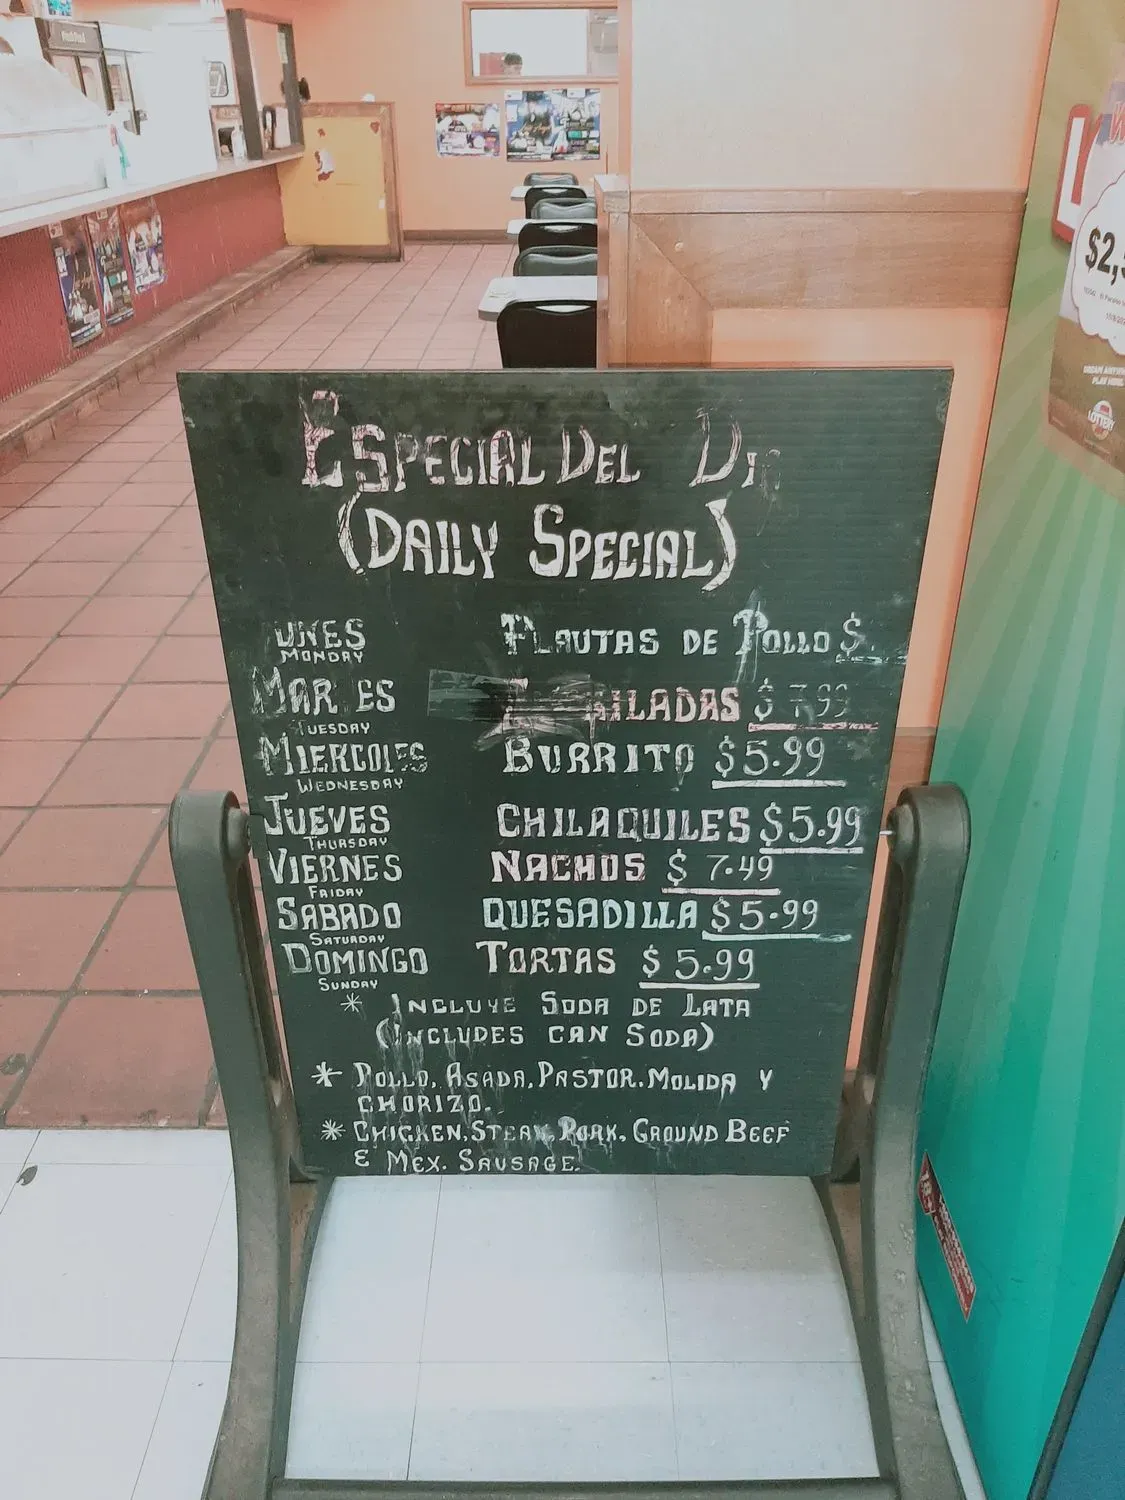 ESPECIAL DEL
(DAILY SPECIAL)
UNES FLAUTAS DE POLLO $
MONDAY
MAR ES ILADAS $ 7.99
TUESDAY
MIERCOLES BURRITO $5.99
WEDNESDAY
JUEVES CHILAQUILES $5.99
THURSDAY
VIERNES NACHOS $ 7.49
FRIDAY
SABADO QUESADILLA $5.99
SATURDAY
DOMINGO TORTAS $ 5.99
SUNDAY
* INCLUYE SODA DE LATA
(INCLUDES CAN SODA)
* POLLO, ASADA, PASTOR. MOLIDA Y
CHORIZO.
* CHICKEN, STEAK, PORK, GROUND BEEF
& MEX. SAUSAGE.
$2,5
DREAM ANYW
PLAY HERE
LOTTERY